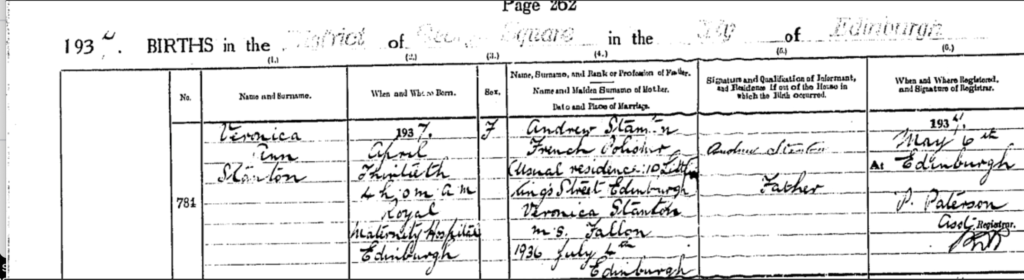 Page 262
1937. BIRTHS in the District of George Square in the City of Edinburgh
(1.) (2.) (3.) (4.) (5.) (6.)
No.
Name and Surname.
When and Where Born.
Sex.
Name, Surname, and Rank or Profession of Father.
Name and Maiden Surname of Mother.
Date and Place of Marriage.
Signature and Qualification of Informant,
and Residence if out of the House in
which the Birth occurred.
When and Where Registered,
and Signature of Registrar.
781
Veronica
Ann
Stanton
1937.
April
Thirtieth
4 h. 0 m. A M
Royal
Maternity Hospital
Edinburgh
F
Andrew Stanton
French Polisher
(Usual residence: 10 Little
King's Street Edinburgh
Veronica Stanton
m.s. Fallon
1936 July 4th
Edinburgh
Andrew Stanton
Father
1937.
May 6th
At Edinburgh
P. Paterson
Asst. Registrar.